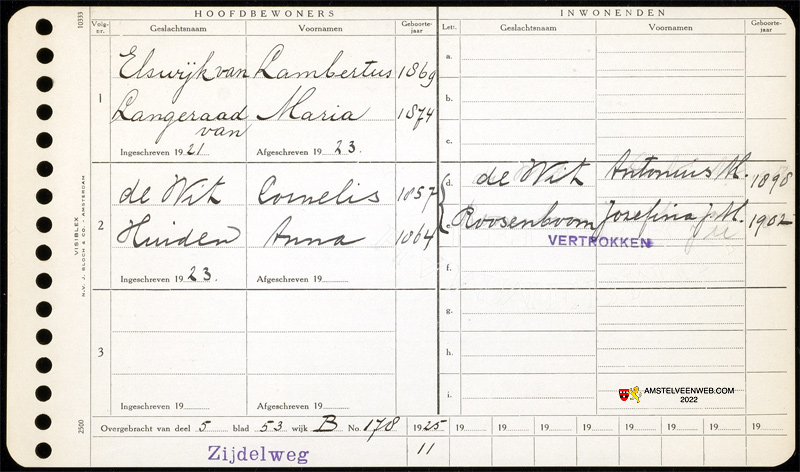 HOOFDBEWONERS
INWONENDEN
Volg-nr. Geslachtsnaam Voornamen Geboorte-jaar
Letr. Geslachtsnaam Voornamen Geboorte-jaar
10333
VISIBLEX
N.V. J. BLOCH & CO. - AMSTERDAM
2500
1
Elswijk van Lambertus 1869
Langeraad van Maria 1874
Ingeschreven 1921 Afgeschreven 1923.
2
de Wit Cornelis 1857
Huiden Anna 1864
Ingeschreven 1923. Afgeschreven 19
3
Ingeschreven 19 Afgeschreven 19
a.
b.
c.
d. de Wit Antonius M. 1898
e. Roosenboom Josefina J. M. 1902
VERTROKKEN
f.
g.
h.
i.
AMSTELVEENWEB.COM
2022
Overgebracht van deel 5 blad 53 wijk B No. 178 1925 19 19 19 19 19 19 19 19
Zijdelweg 11